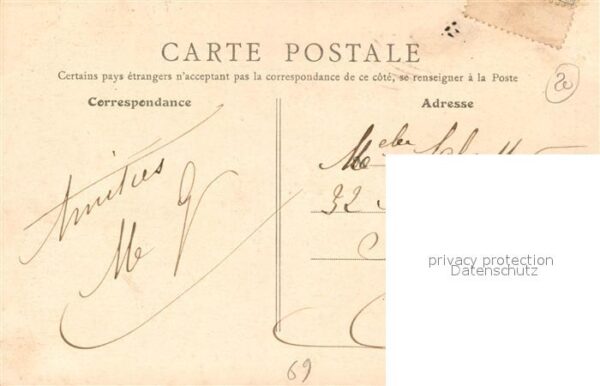 CARTE POSTALE
Certains pays étrangers n'acceptant pas la correspondance de ce côté, se renseigner à la Poste
20
Correspondance
Adresse
Amitiés
M
32
privacy protection
Datenschutz
69